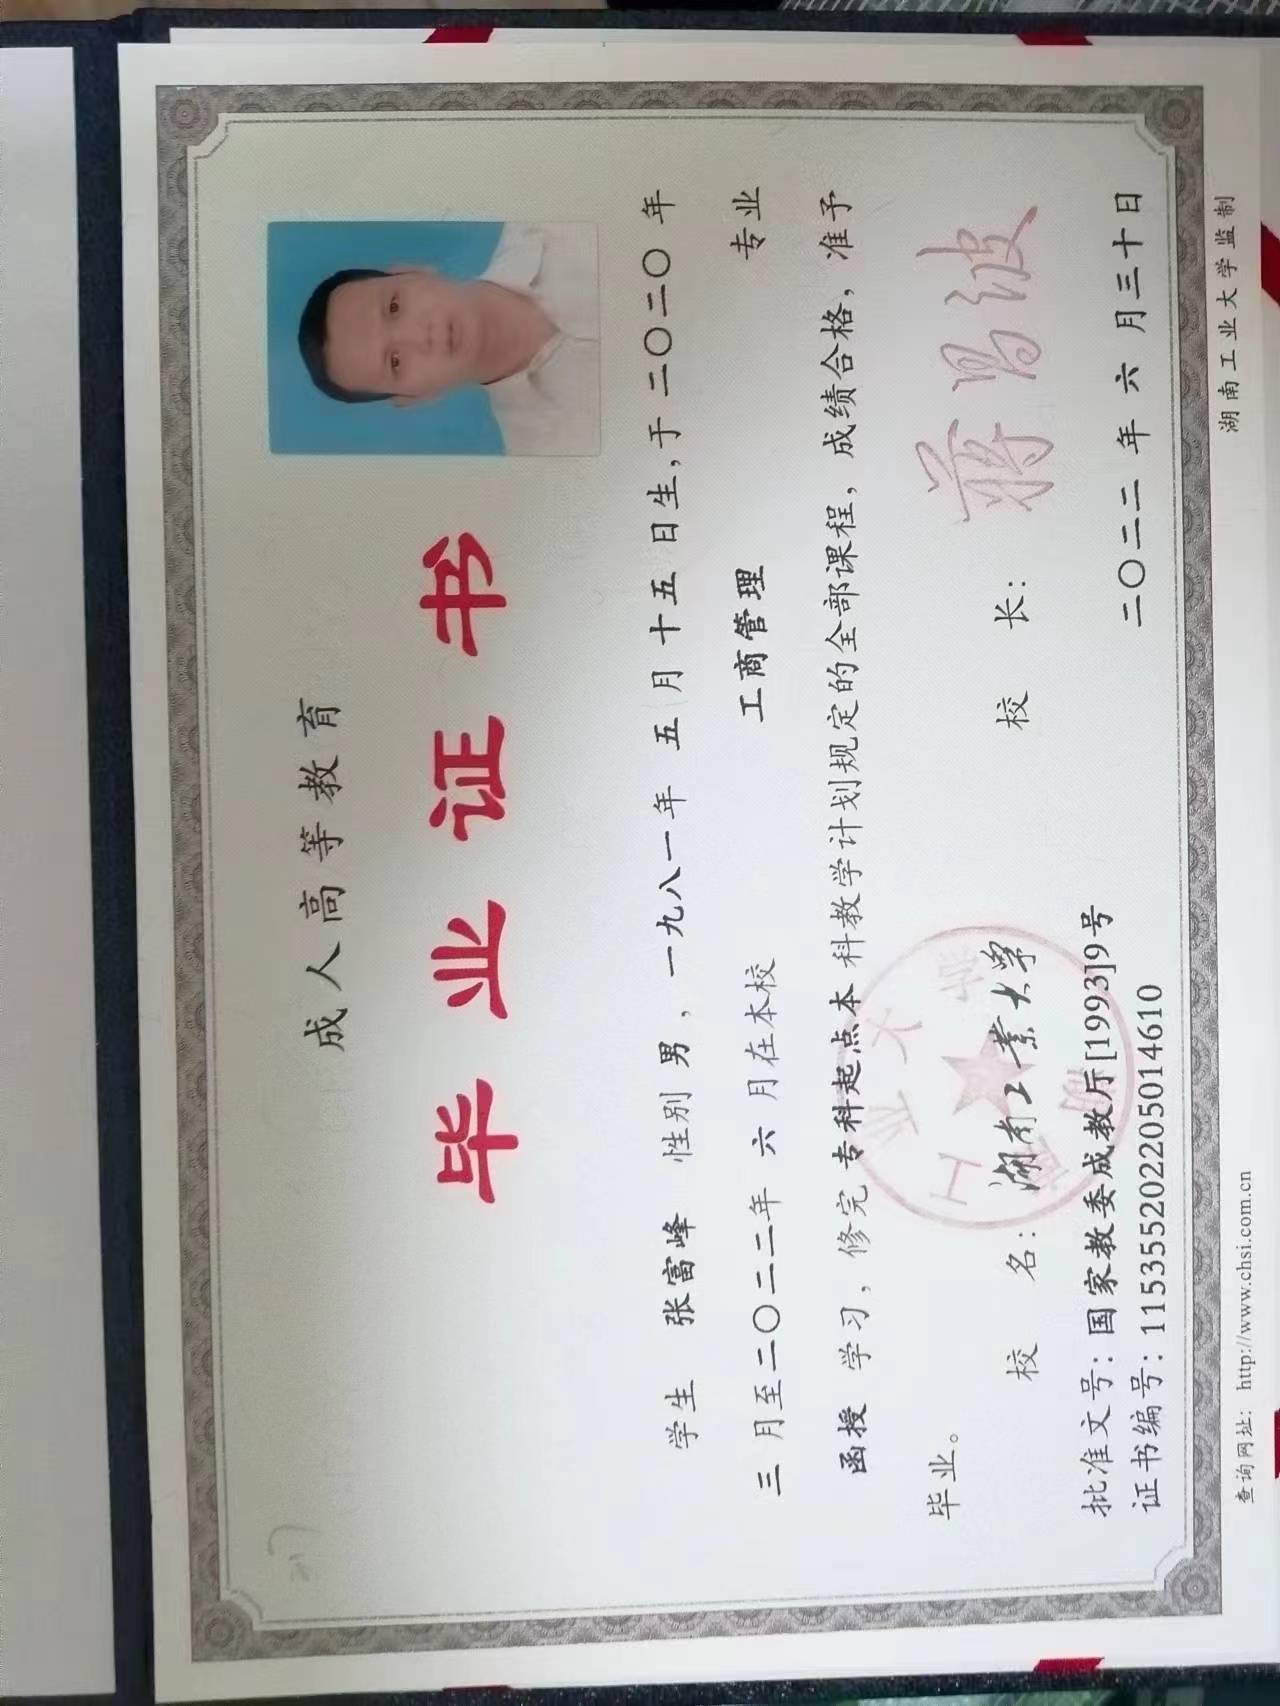 成人高等教育
毕业证书
学生 张富峰 性别 男，一九八一年 五 月 十五 日生，于 二〇二〇 年
三 月至二〇二二年 六 月在本校 工商管理 专业
函授 学习，修完 专科起点本 科教学计划规定的全部课程，成绩合格，准予
毕业。
校 名：湖南工业大学 校 长：
批准文号：国家教委成教厅[1993]9号
证书编号：115355202205014610 二〇二二 年 六 月 三十 日
查询网址：http://www.chsi.com.cn 湖南工业大学监制